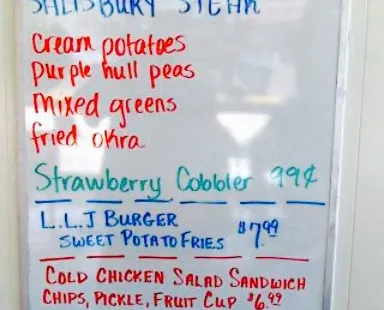 SALISBURY STEAK
Cream potatoes
Purple hull peas
Mixed greens
fried okra
Strawberry Cobbler 99¢
L.L.J BURGER
SWEET POTATO FRIES $7.99
COLD CHICKEN SALAD SANDWICH
CHIPS, PICKLE, FRUIT CUP $6.99